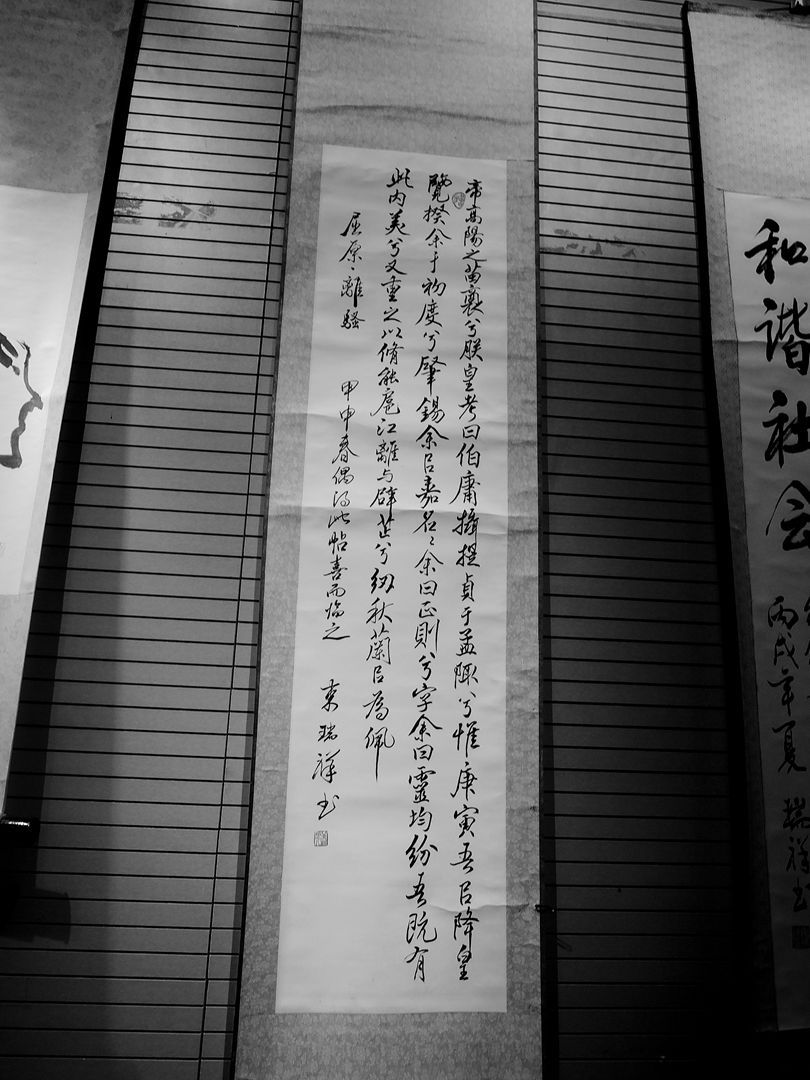 和谐社会
丙戌年夏 瑞祥书
帝高陽之苗裔兮朕皇考曰伯庸攝提貞于孟陬兮惟庚寅吾㠯降皇
覽揆余于初度兮肇錫余㠯嘉名〻余曰正則兮字余曰靈均紛吾既有
此内美兮又重之以脩能扈江離与辟芷兮纫秋蘭㠯為佩
屈原、離騷 甲申春偶得此帖喜而临之 瑞祥书